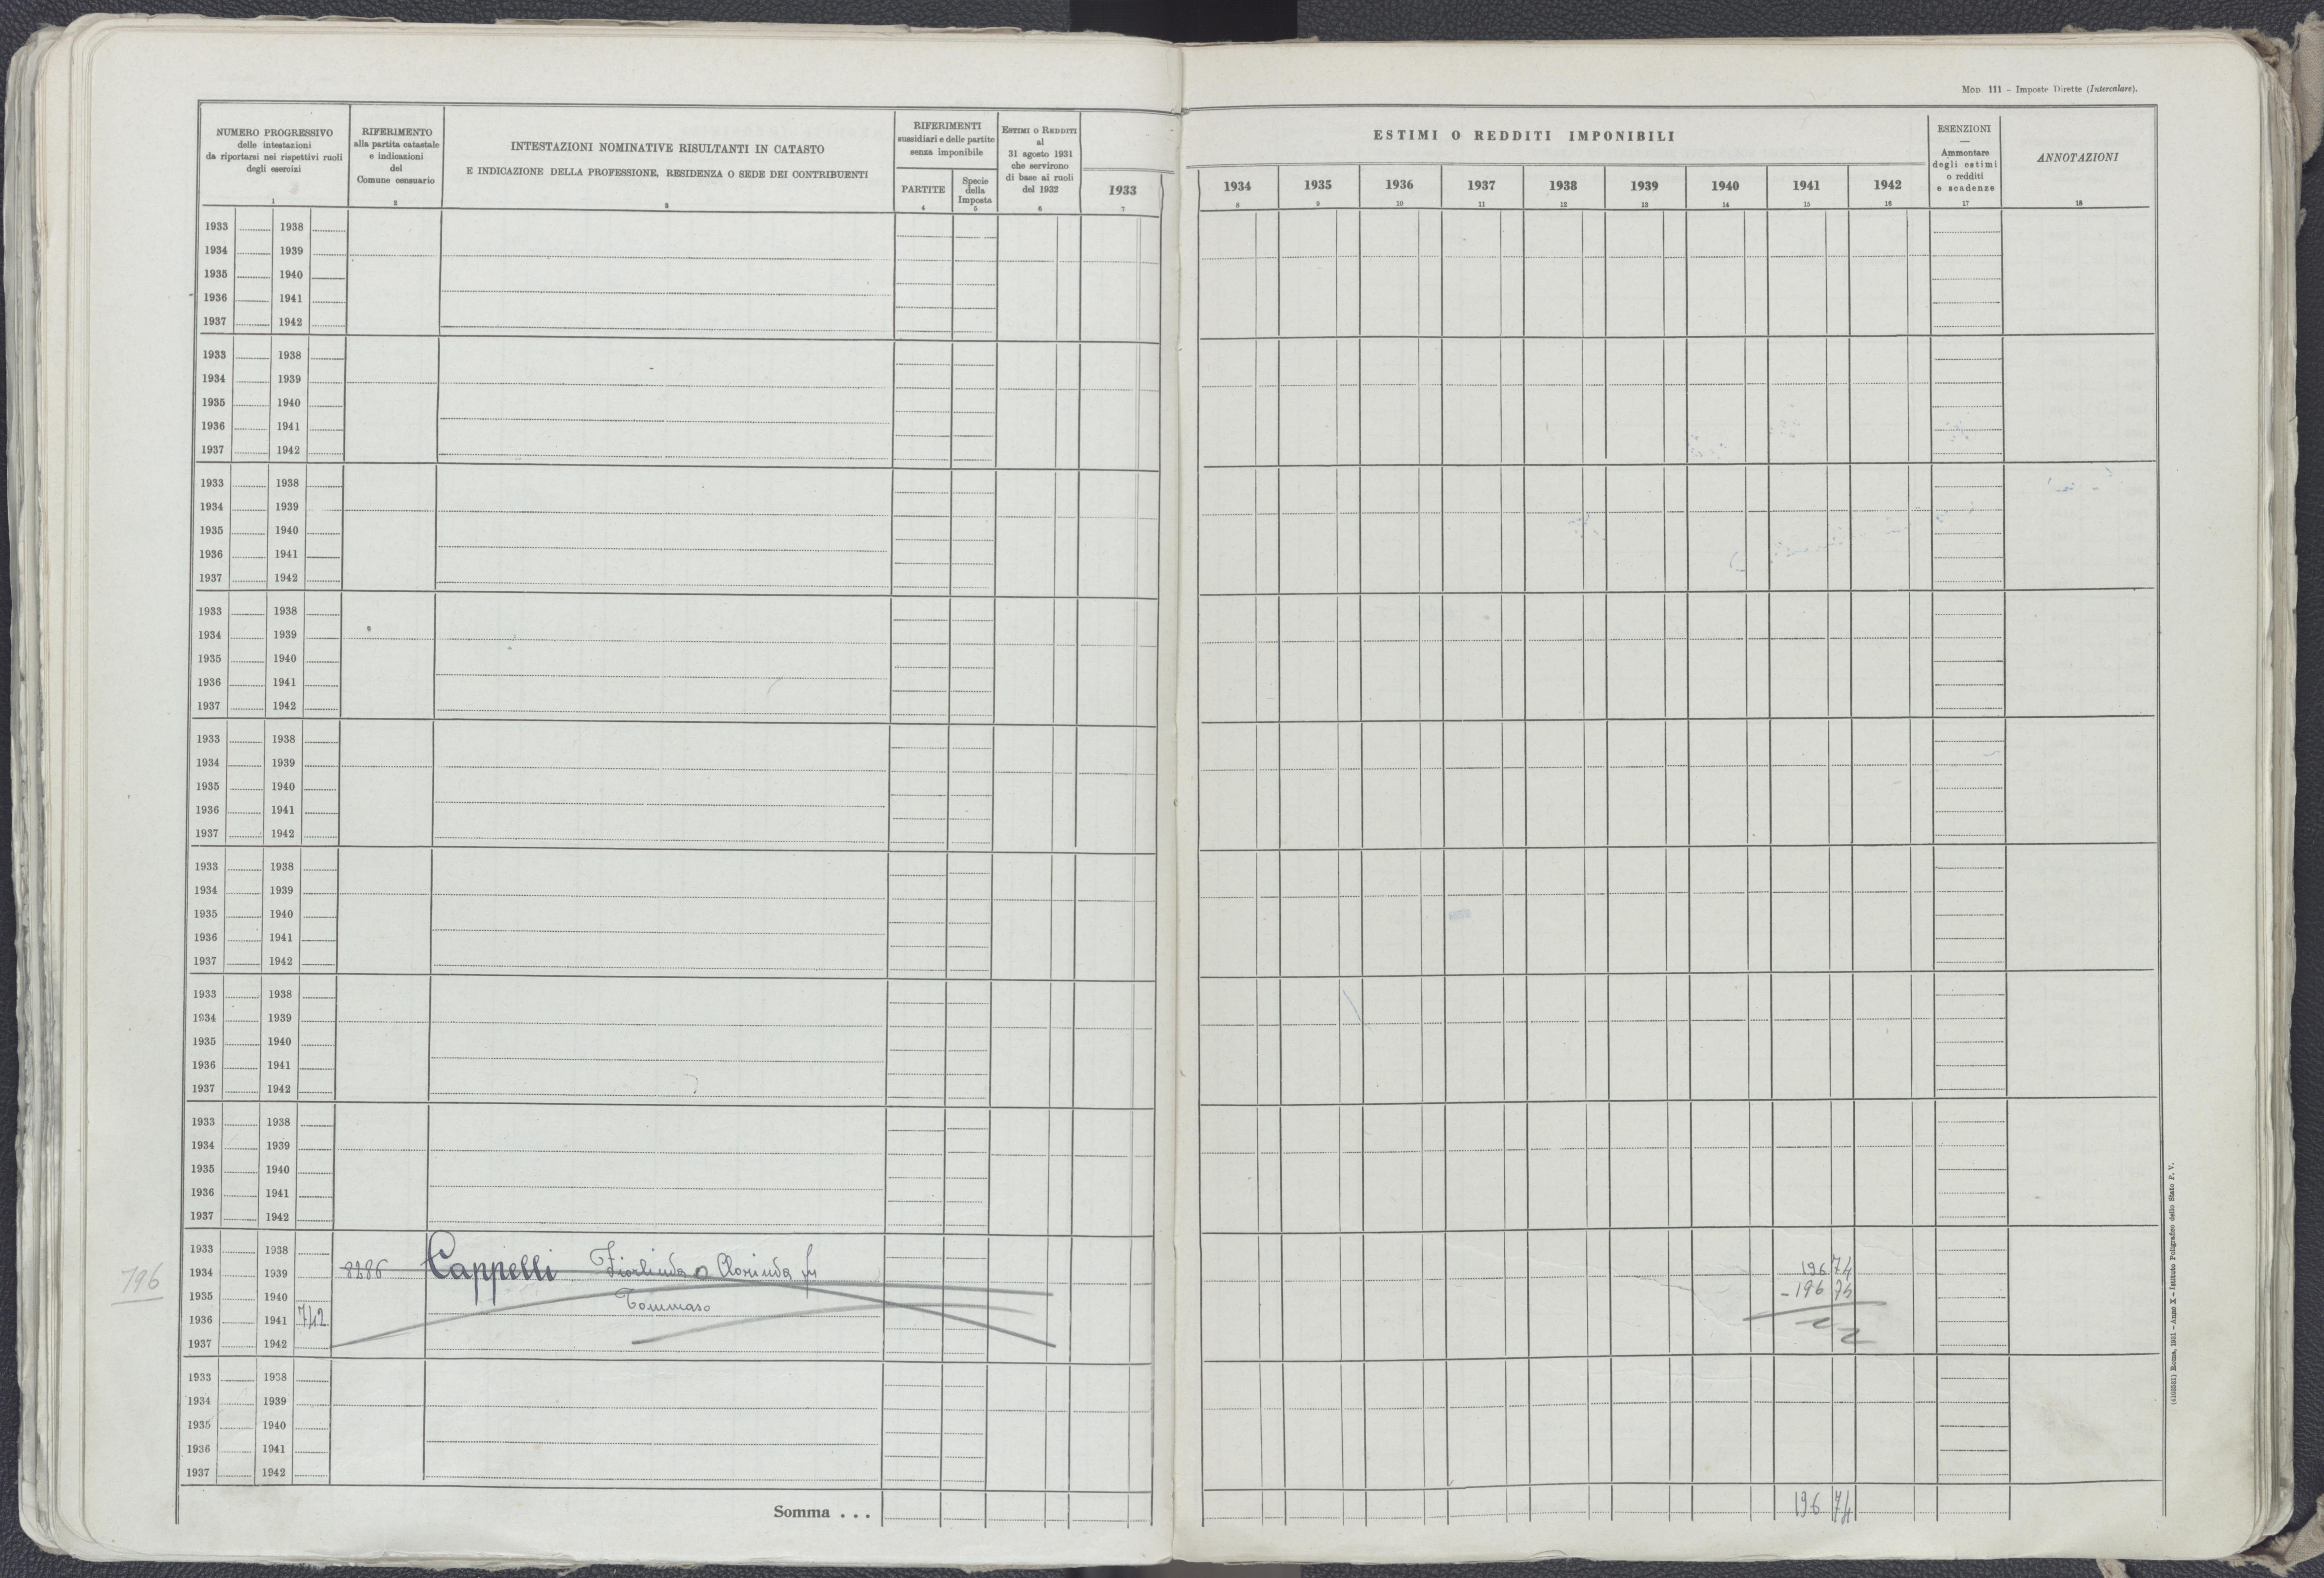 Mod. 111 – Imposte Dirette (Intercalare).
NUMERO PROGRESSIVO
delle intestazioni
da riportarsi nei rispettivi ruoli
degli esercizi
1
RIFERIMENTO
alla partita catastale
e indicazioni
del
Comune censuario
2
INTESTAZIONI NOMINATIVE RISULTANTI IN CATASTO
E INDICAZIONE DELLA PROFESSIONE, RESIDENZA O SEDE DEI CONTRIBUENTI
3
RIFERIMENTI
sussidiari e delle partite
senza imponibile
PARTITE
4
Specie
della
Imposta
5
Estimi o Redditi
al
31 agosto 1931
che servirono
di base ai ruoli
del 1932
6
1933
7
ESTIMI O REDDITI IMPONIBILI
1934 1935 1936 1937 1938 1939 1940 1941 1942
8 9 10 11 12 13 14 15 16
ESENZIONI
—
Ammontare
degli estimi
o redditi
e scadenze
17
ANNOTAZIONI
18
1933 1938
1934 1939
1935 1940
1936 1941
1937 1942
1933 1938
1934 1939
1935 1940
1936 1941
1937 1942
1933 1938
1934 1939
1935 1940
1936 1941
1937 1942
1933 1938
1934 1939
1935 1940
1936 1941
1937 1942
1933 1938
1934 1939
1935 1940
1936 1941
1937 1942
1933 1938
1934 1939
1935 1940
1936 1941
1937 1942
1933 1938
1934 1939
1935 1940
1936 1941
1937 1942
1933 1938
1934 1939
1935 1940
1936 1941
1937 1942
1933 1938
796 1934 1939 8286 Cappelli Fiorlinda o Clorinda fu 196 74
1935 1940 Tommaso – 196 74
1936 1941 742
1937 1942
1933 1938
1934 1939
1935 1940
1936 1941
1937 1942
Somma . . . 196 74
(4103581) Roma, 1931 – Anno X – Istituto Poligrafico dello Stato P. V.